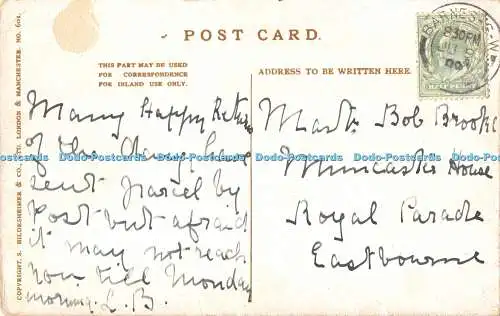 POST CARD.
THIS PART MAY BE USED
FOR CORRESPONDENCE
FOR INLAND USE ONLY.
ADDRESS TO BE WRITTEN HERE.
BARNES
8.30PM
HALFPENNY
COPYRIGHT, S. HILDESHEIMER & CO., LTD. LONDON & MANCHESTER. NO. 601.
Many Happy Returns
of the day, have
sent parcel by
Post but afraid
it may not reach
you till Monday
morning. L.B.
Mastr Bob Brooks
Muncaster House
Royal Parade
Eastbourne
Dodo-Postcards Dodo-Postcards Dodo-Postcards Dodo-Postcards Dodo-Postcards